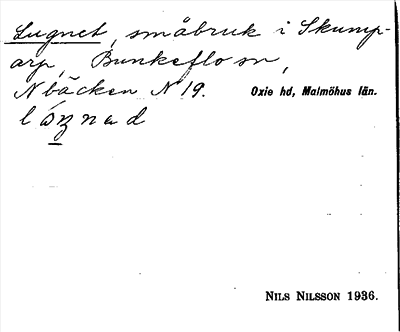 Lugnet, småbruk i Skump-
arp, Bunkeflo sn,
N bäcken № 19. Oxie hd, Malmöhus län.
NILS NILSSON 1936.